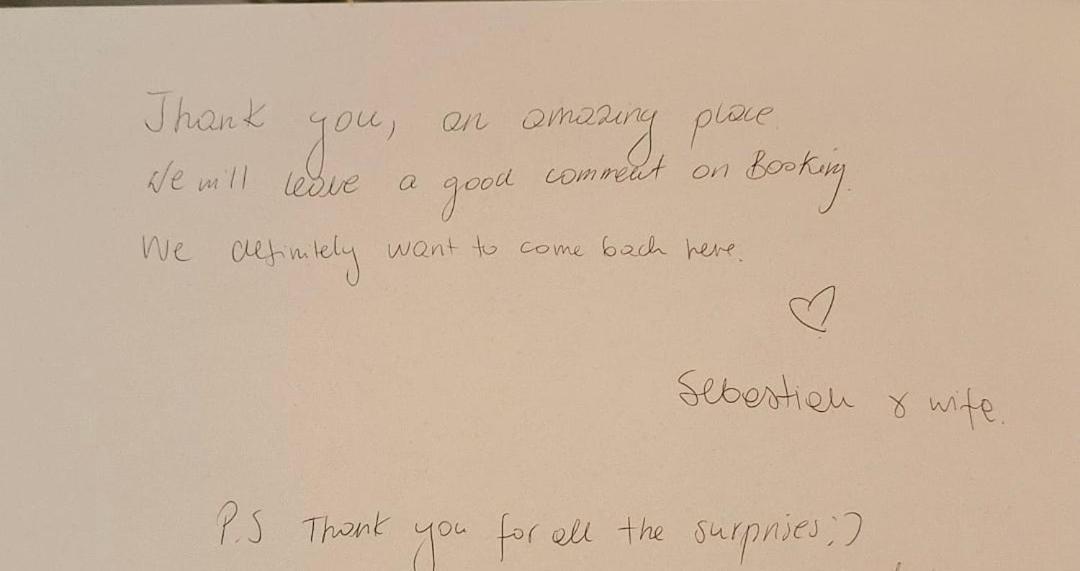 Thank you, an amazing place
We will leave a good comment on Booking.
We definitely want to come back here.
♡
Sebastian & wife.
P.S Thank you for all the surprises;)